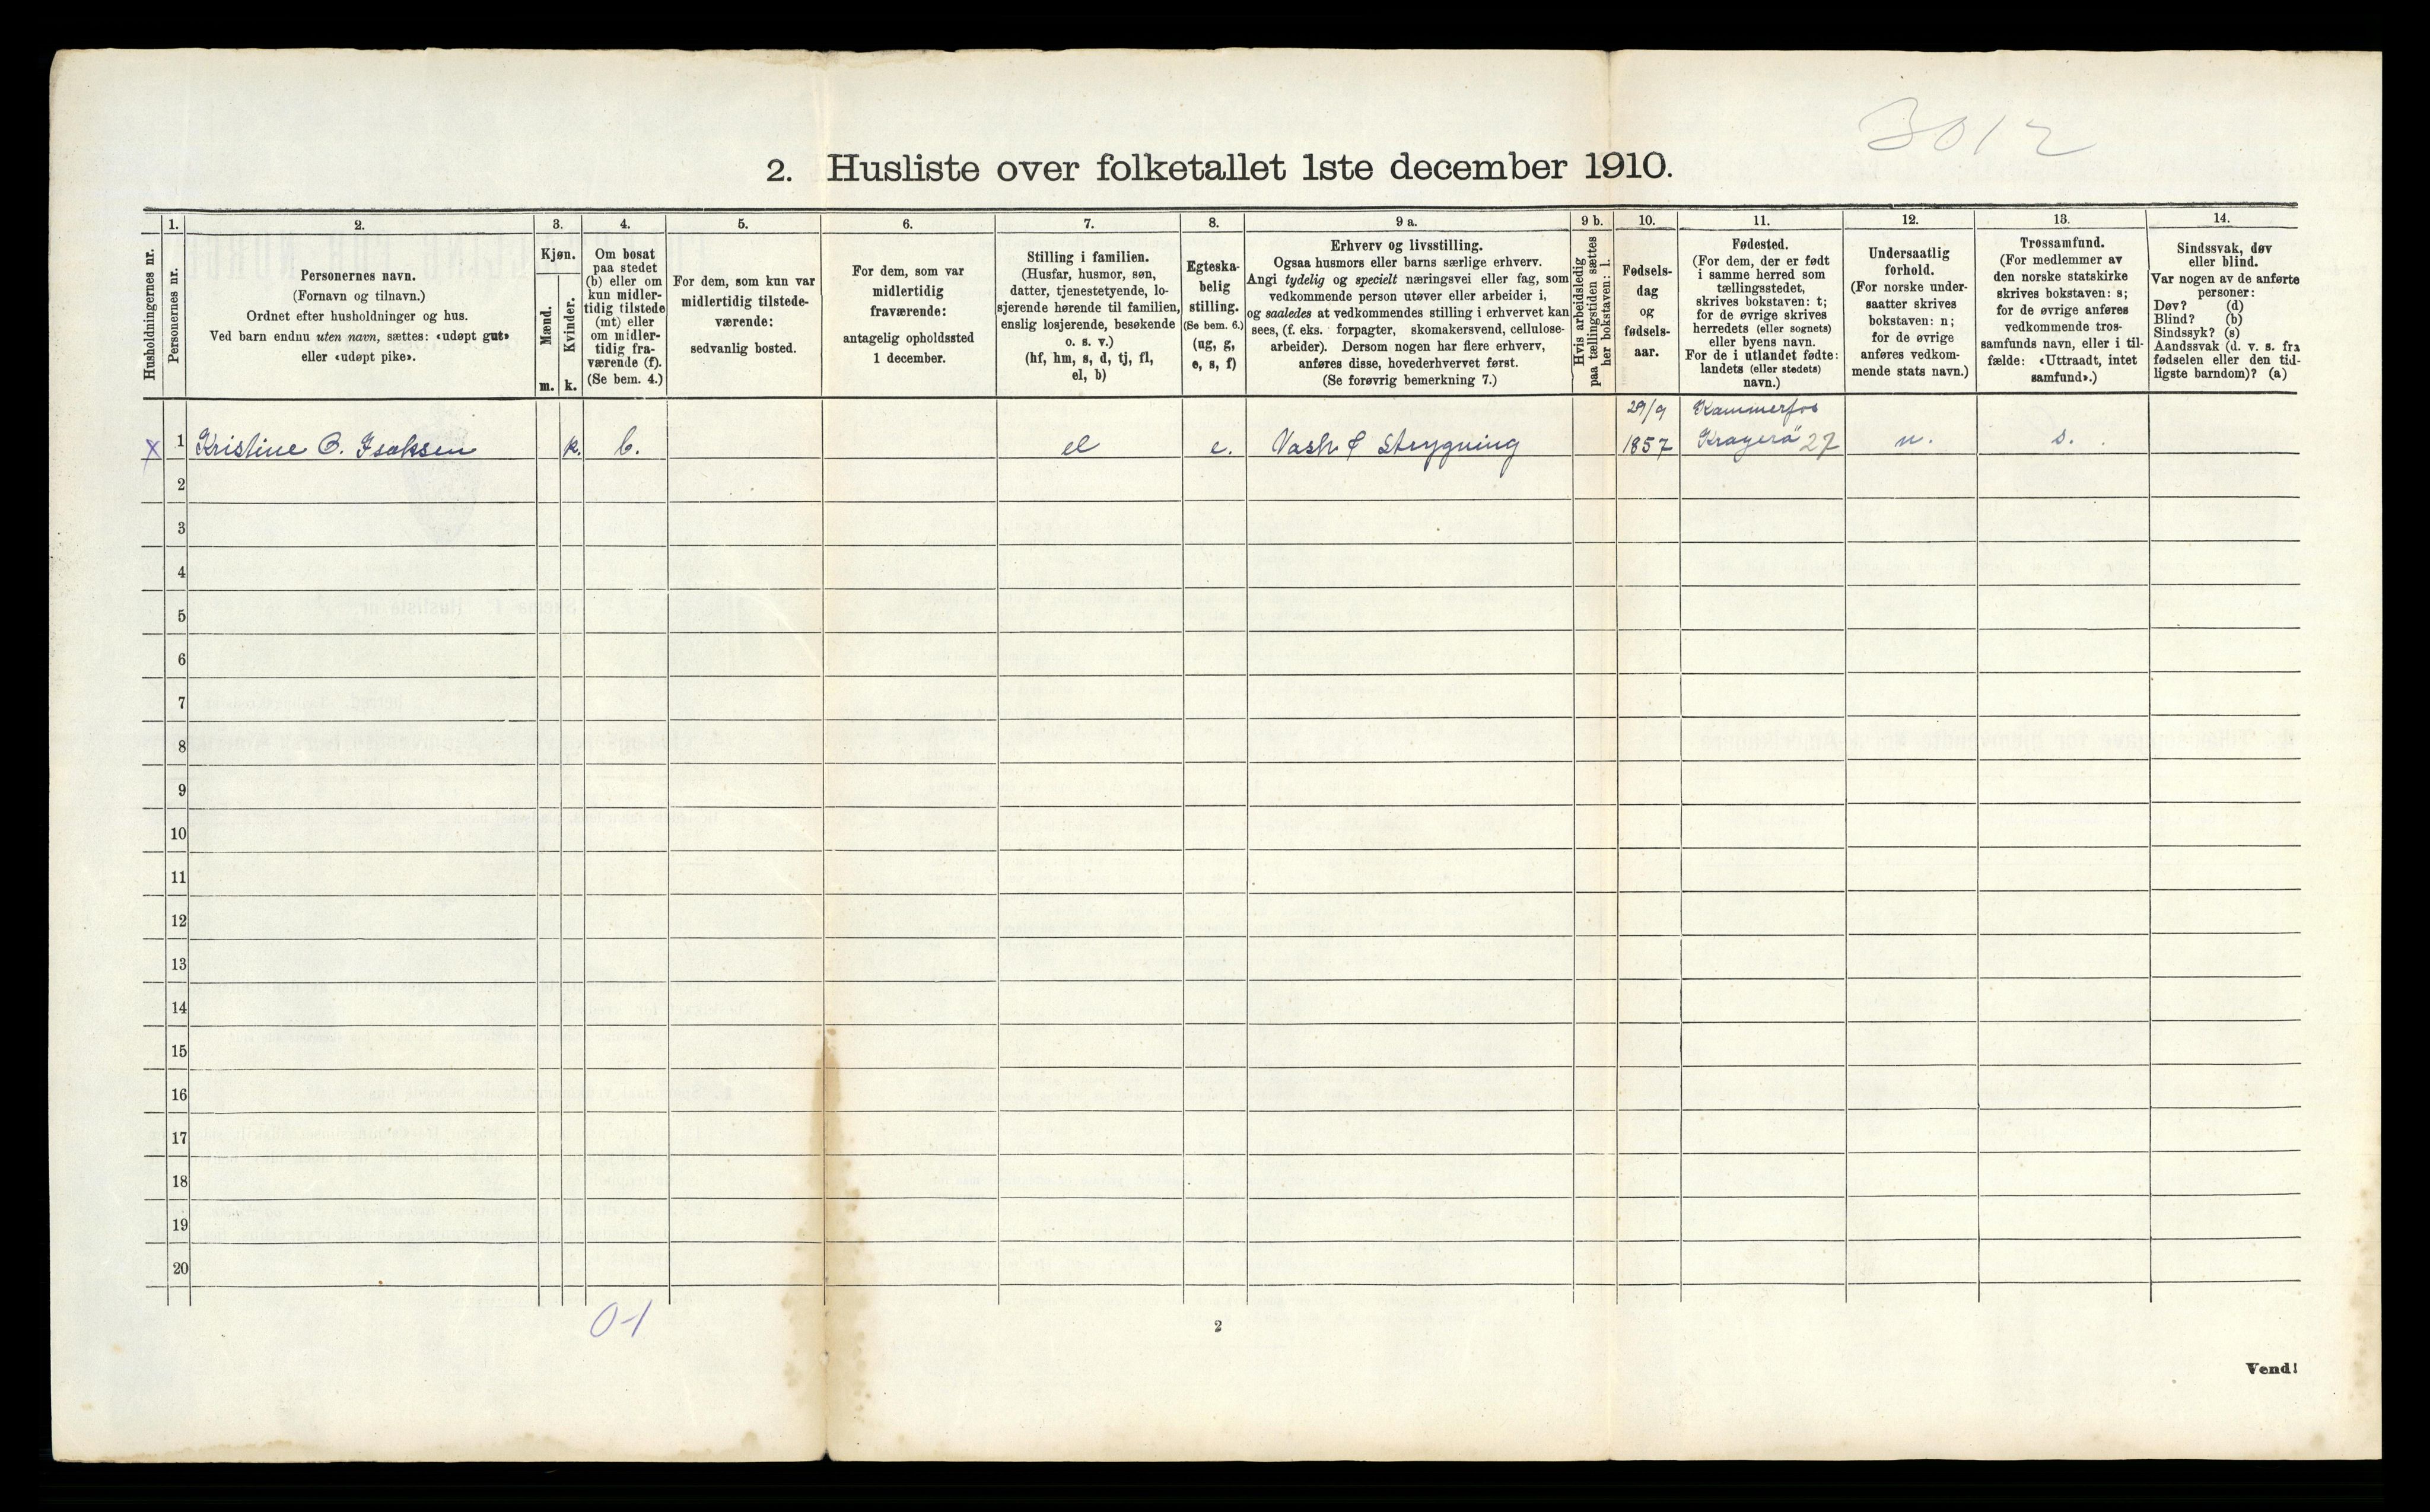 3012
2. Husliste over folketallet 1ste december 1910.
Husholdningernes nr.
1.
Personernes nr.
2.
Personernes navn.
(Fornavn og tilnavn.)
Ordnet efter husholdninger og hus.
Ved barn endnu uten navn, sættes: «udøpt gut»
eller «udøpt pike».
3.
Kjøn.
Mænd.
Kvinder.
m.
k.
4.
Om bosat
paa stedet
(b) eller om
kun midler-
tidig tilstede
(mt) eller
om midler-
tidig fra-
værende (f).
(Se bem. 4.)
5.
For dem, som kun var
midlertidig tilstede-
værende:
sedvanlig bosted.
6.
For dem, som var
midlertidig
fraværende:
antagelig opholdssted
1 december.
7.
Stilling i familien.
(Husfar, husmor, søn,
datter, tjenestetyende, lo-
sjerende hørende til familien,
enslig losjerende, besøkende
o. s. v.)
(hf, hm, s, d, tj, fl,
el, b)
8.
Egteska-
belig
stilling.
(Se bem. 6.)
(ug, g,
e, s, f)
9 a.
Erhverv og livsstilling.
Ogsaa husmors eller barns særlige erhverv.
Angi tydelig og specielt næringsvei eller fag, som
vedkommende person utøver eller arbeider i,
og saaledes at vedkommendes stilling i erhvervet kan
sees, (f. eks. forpagter, skomakersvend, cellulose-
arbeider). Dersom nogen har flere erhverv,
anføres disse, hovederhvervet først.
(Se forøvrig bemerkning 7.)
9 b.
Hvis arbeidsledig
paa tællingstiden sættes
her bokstaven: l.
10.
Fødsels-
dag
og
fødsels-
aar.
11.
Fødested.
(For dem, der er født
i samme herred som
tællingsstedet,
skrives bokstaven: t;
for de øvrige skrives
herredets (eller sognets)
eller byens navn.
For de i utlandet fødte:
landets (eller stedets)
navn.)
12.
Undersaatlig
forhold.
(For norske under-
saatter skrives
bokstaven: n;
for de øvrige
anføres vedkom-
mende stats navn.)
13.
Trossamfund.
(For medlemmer av
den norske statskirke
skrives bokstaven: s;
for de øvrige anføres
vedkommende tros-
samfunds navn, eller i til-
fælde: «Uttraadt, intet
samfund».)
14.
Sindssvak, døv
eller blind.
Var nogen av de anførte
personer:
Døv? (d)
Blind? (b)
Sindssyk? (s)
Aandssvak (d. v. s. fra
fødselen eller den tid-
ligste barndom)? (a)
29/9 Kammerfos
x 1 Kristine C. Isaksen k. b. el e. Vask & Strygning 1857 Kragerö 27 n. s.
2
3
4
5
6
7
8
9
10
11
12
13
14
15
16
17
18
19
20
0-1
2
Vend!